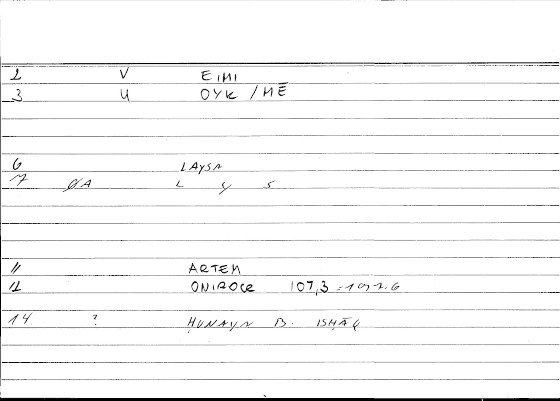 2 V EIMI
3 U OYK / MĒ
6 LAYSA
7 ØA L y s
11 ARTEM
12 ONIROCR 107,3 = 109,2.6
14. ? ḤUNAYN B. ISḤĀQ